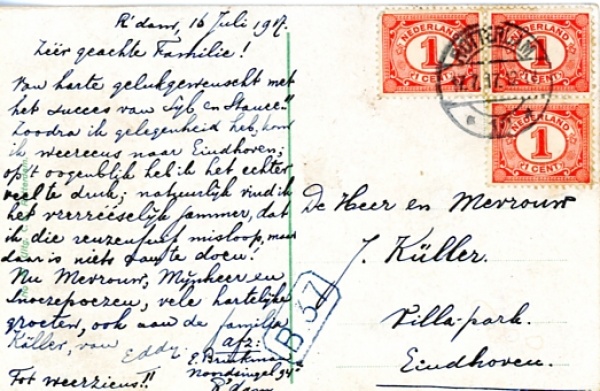 R'dam, 16 Juli 1917.
Zéér geachte Familie!
Van harte gelukgewenscht met
het succes van Syb. en
Zoodra ik gelegenheid heb, kom
ik weereens naar Eindhoven;
op 't oogenblik heb ik het echter
veel te druk; natuurlijk vind ik
het verrrééselijk jammer, dat
ik die reuzenfuif misloop, maar
daar is niets aan te doen!
Nu Mevrouw, Mijnheer en
Snoezepoezen, vele hartelijke
groeten, ook aan de familje
Küller, van Eddy.
Tot weerziens!!
afz:
E. Brinkman
Noordsingel 94
R'dam
NEDERLAND
1
1 CENT
NEDERLAND
1
1 CENT
NEDERLAND
1
1 CENT
ROTTERDAM
17.7.17
De Heer en Mevrouw
J. Küller.
Villa-park.
Eindhoven.
B.37